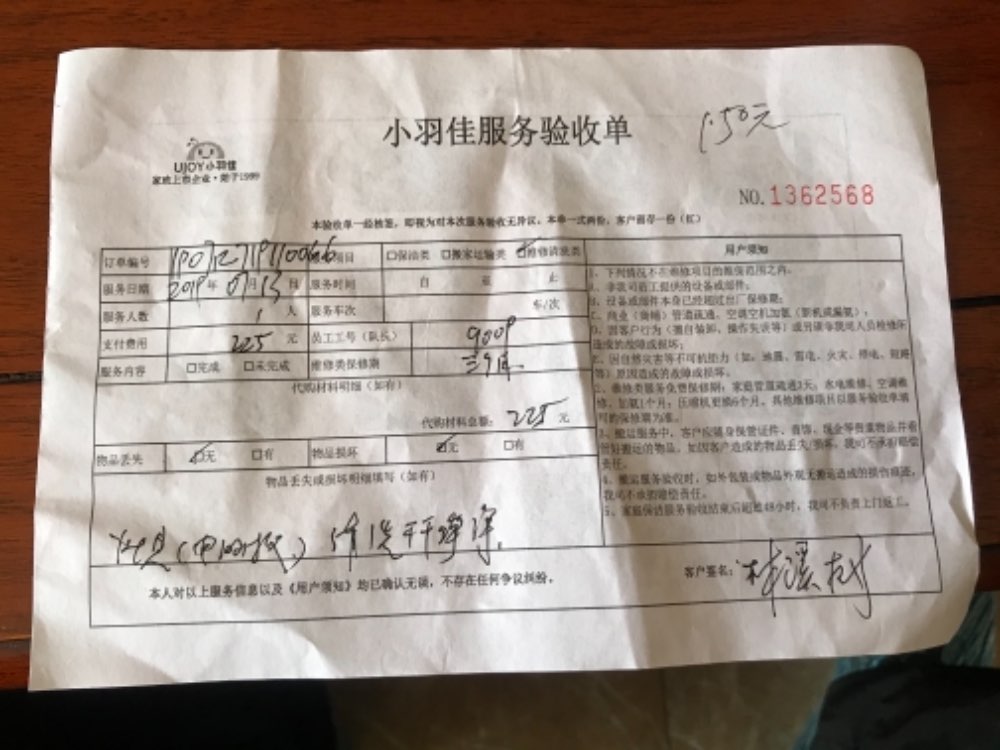 小羽佳服务验收单
1.50元
UJOY小羽佳
家政上市企业·始于1999
NO.1362568
本验收单一经核签,即视为对本次服务验收无异议。本单一式两份,客户留存一份(红)
订单编号 项目 □保洁类 □搬家运输类 ☑维修清洗类
服务日期 2019年07月13日 服务时间 自 至 止
服务人数 1人 服务车次 车/次
支付费用 225元 员工工号(队长) 9009
服务内容 □完成 □未完成 维修类保修期 三个月
代购材料明细(如有)
代购材料总额:225元
物品丢失 ☑无 □有 物品损坏 ☑无 □有
物品丢失或损坏明细填写(如有)
清洗干净
本人对以上服务信息以及《用户须知》均已确认无误,不存在任何争议纠纷。
用户须知
1、下列情况不在维修项目的维保范围之内。
A、非我司员工提供的设备或部件;
B、设备或部件本身已经超过出厂保修期;
C、商业(商铺)管道疏通、空调空机加氟(新机或漏氟);
D、因客户行为(擅自装卸、操作失误等)或另请非我司人员检修坏
造成的故障或损坏;
E、因自然灾害等不可抗力(如:地震、雷电、火灾、停电、短路
等)原因造成的故障或损坏。
2、维修类服务免费保修期:家庭管道疏通3天;水电维修、空调维
修、加氟1个月;压缩机更换6个月,其他维修项目以服务验收单填
写的保修期为准。
3、搬运服务中,客户应随身保管证件、首饰、现金等贵重物品并看
管好搬运的物品,如因客户造成的物品丢失/损坏,我司不承担赔偿
责任。
4、搬运服务验收时,如外包装或物品外观无搬运造成的损伤痕迹,
我司不承担赔偿责任。
5、家庭保洁服务验收结束后超过48小时,我司不负责上门返工。
客户签名:林溪树